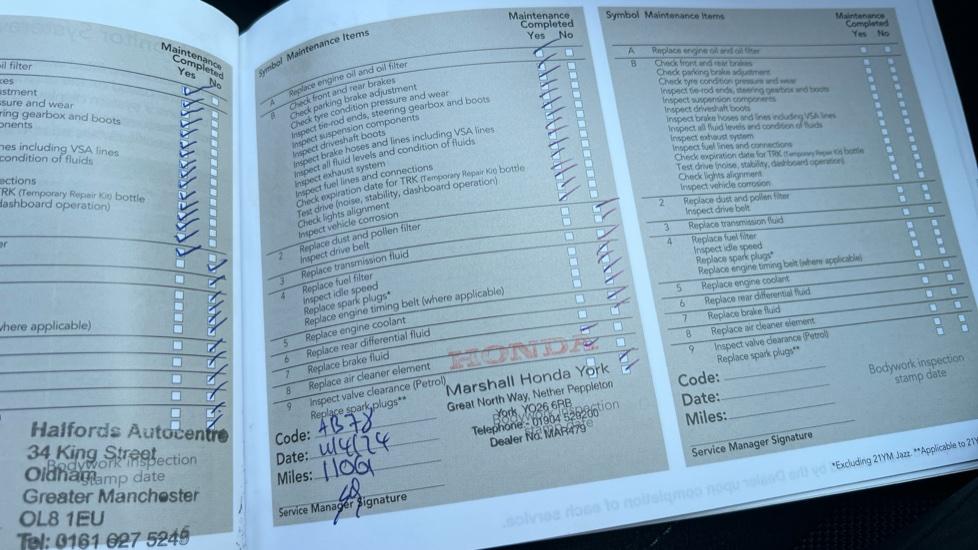 Maintenance
Completed
Yes No
il filter
kes
stment
sure and wear
ring gearbox and boots
onents
nes including VSA lines
condition of fluids
ections
TRK (Temporary Repair Kit) bottle
dashboard operation)
er
where applicable)
Halfords Autocentre
34 King Street
Oldham
Greater Manchester
OL8 1EU
Tel: 0161 627 5245
Bodywork inspection
stamp date
Symbol Maintenance Items
Maintenance
Completed
Yes No
A Replace engine oil and oil filter
B Check front and rear brakes
Check parking brake adjustment
Check tyre condition pressure and wear
Inspect tie-rod ends, steering gearbox and boots
Inspect suspension components
Inspect driveshaft boots
Inspect brake hoses and lines including VSA lines
Inspect all fluid levels and condition of fluids
Inspect exhaust system
Inspect fuel lines and connections
Check expiration date for TRK (Temporary Repair Kit) bottle
Test drive (noise, stability, dashboard operation)
Check lights alignment
Inspect vehicle corrosion
2 Replace dust and pollen filter
Inspect drive belt
3 Replace transmission fluid
4 Replace fuel filter
Inspect idle speed
Replace spark plugs*
Replace engine timing belt (where applicable)
5 Replace engine coolant
6 Replace rear differential fluid
7 Replace brake fluid
8 Replace air cleaner element
9 Inspect valve clearance (Petrol)
Replace spark plugs**
HONDA
Marshall Honda York
Great North Way, Nether Poppleton
York YO26 6RB
Telephone:- 01904 529200
Dealer No. MAR479
Bodywork inspection
stamp date
Code: AB78
Date:
Miles: 11061
Service Manager Signature
Symbol Maintenance Items
Maintenance
Completed
Yes No
A Replace engine oil and oil filter
B Check front and rear brakes
Check parking brake adjustment
Check tyre condition pressure and wear
Inspect tie-rod ends, steering gearbox and boots
Inspect suspension components
Inspect driveshaft boots
Inspect brake hoses and lines including VSA lines
Inspect all fluid levels and condition of fluids
Inspect exhaust system
Inspect fuel lines and connections
Check expiration date for TRK (Temporary Repair Kit) bottle
Test drive (noise, stability, dashboard operation)
Check lights alignment
Inspect vehicle corrosion
2 Replace dust and pollen filter
Inspect drive belt
3 Replace transmission fluid
4 Replace fuel filter
Inspect idle speed
Replace spark plugs*
Replace engine timing belt (where applicable)
5 Replace engine coolant
6 Replace rear differential fluid
7 Replace brake fluid
8 Replace air cleaner element
9 Inspect valve clearance (Petrol)
Replace spark plugs**
Code:
Date:
Miles:
Bodywork inspection
stamp date
Service Manager Signature
*Excluding 21YM Jazz. **Applicable to 21Y